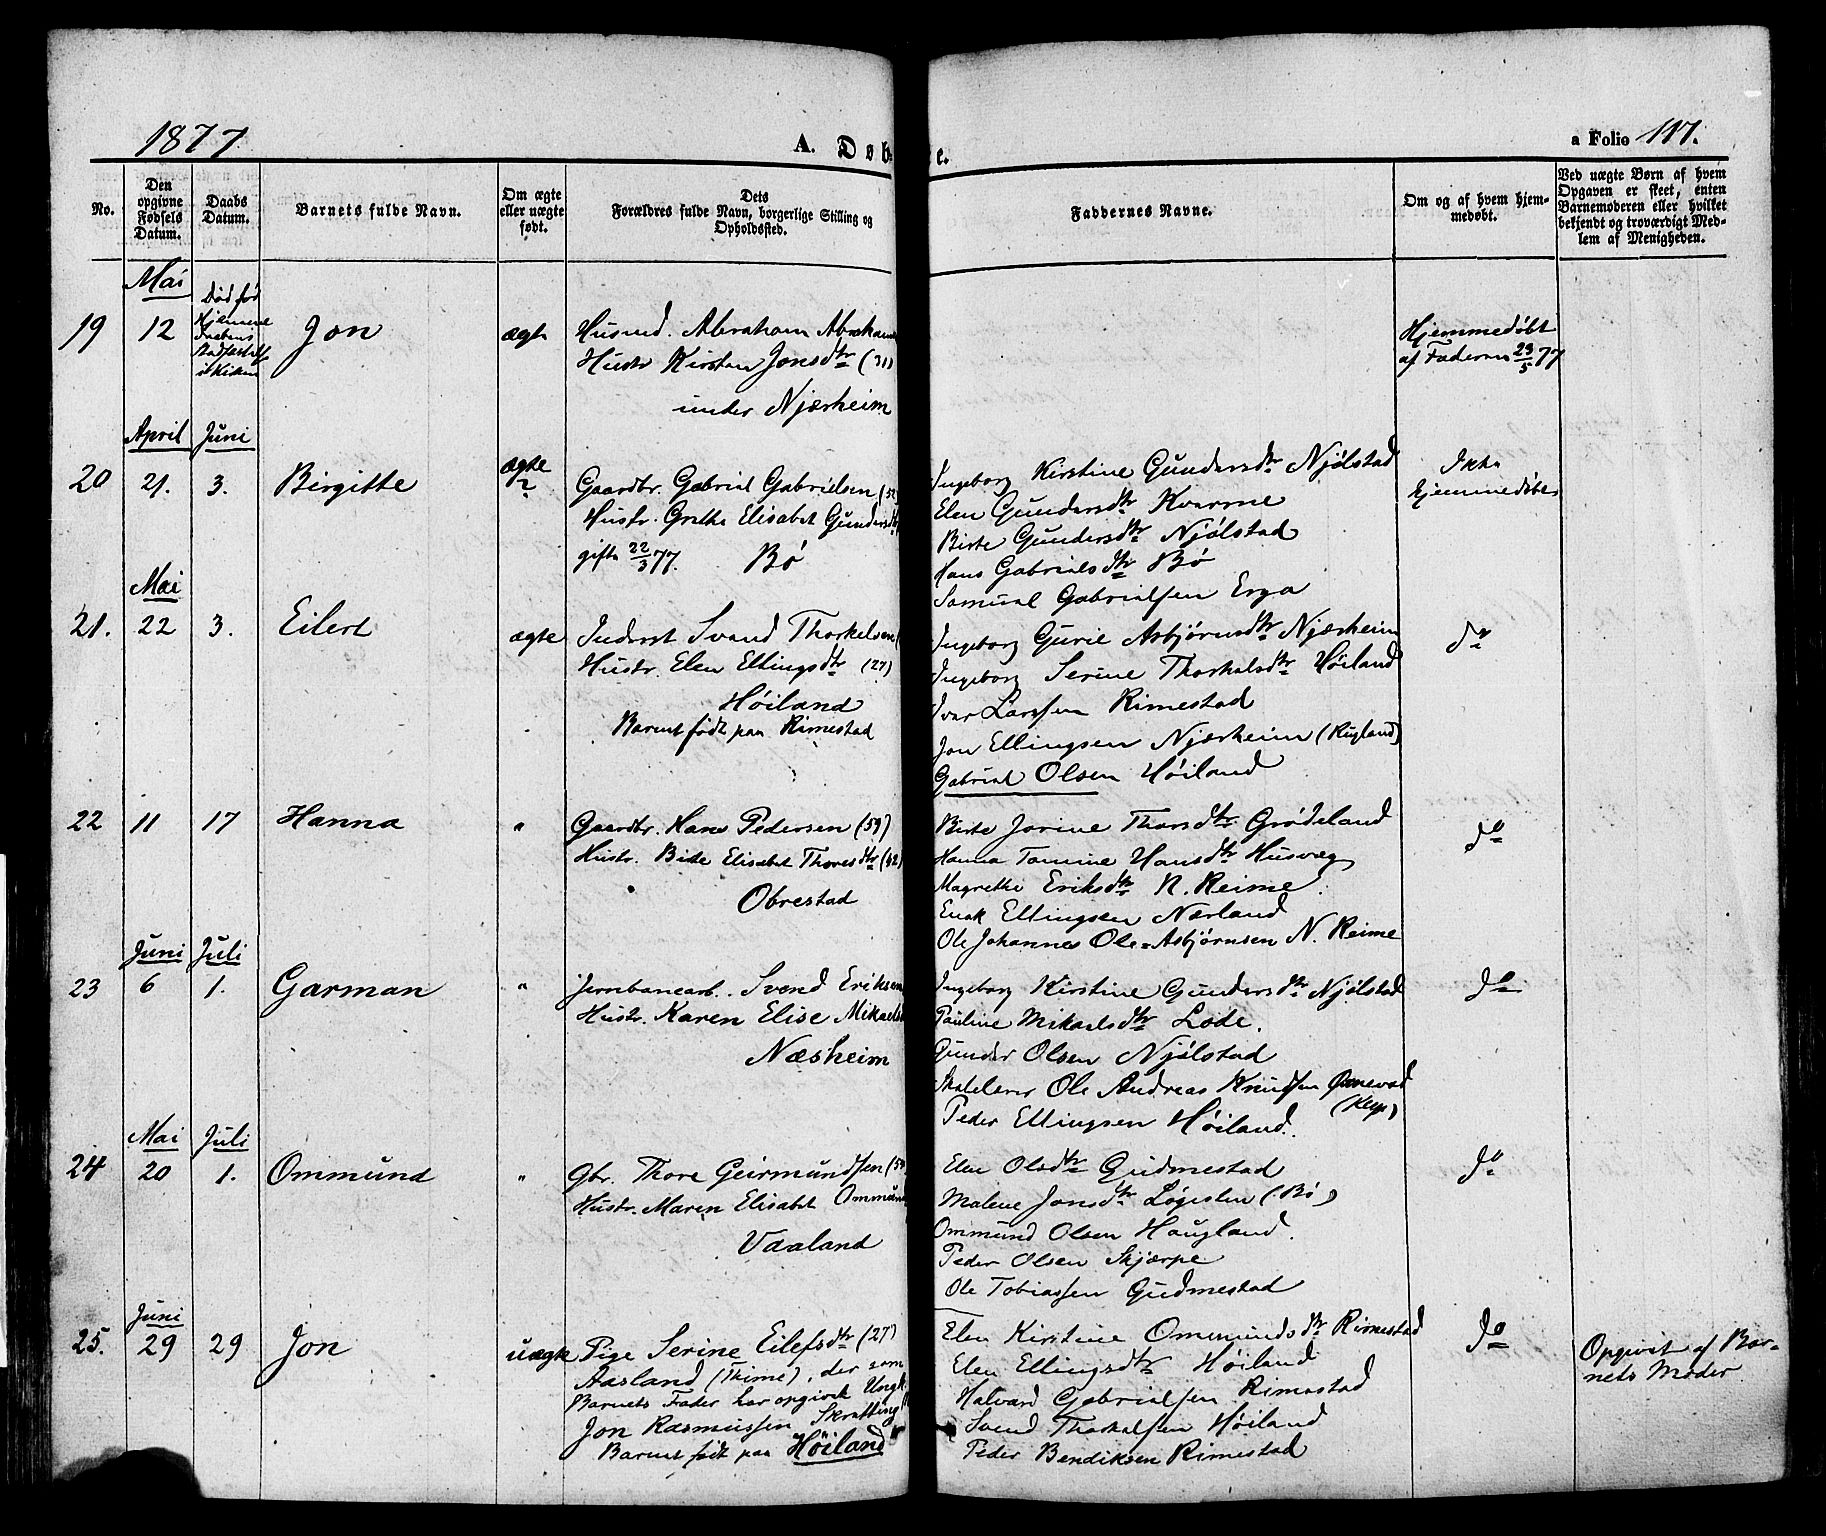 1877
A. Døb
e.
a Folio 117.
No.
Den opgivne Fødsels Datum.
Daabs Datum.
Barnets fulde Navn.
Om ægte eller uægte født.
Dets Forældres fulde Navn, borgerlige Stilling og Opholdssted.
Faddernes Navne.
Om og af hvem hjemmedøbt.
Ved uægte Børn af hvem Opgaven er skeet, enten Barnemoderen eller hvilket bekjendt og troværdigt Medlem af Menigheden.
Mai
19
12
Jon
ægte
Husmd. Abraham Abraham
Hustr Kirsten Jonsdtr (31)
under Njærheim
Hjemmedøbt
af Faderen 23/5 77
April
Juni
20
21.
3.
Birgitte
ægte
Gaardbr. Gabriel Gabrielsen (52
Hustr. Grethe Elisabet Gundersdtr
gifte 22/3 77. Bø
Ingeborg Kirstine Gundersdtr Njølstad
Elen Gundersdtr Kvarme
Birte Gundersdtr Njølstad
Hans Gabrielsdtr Bø
Samuel Gabrielsen Erga
Ikke
hjemmedøbt
Mai
21.
22
3.
Eilert
ægte
Inderst Svend Thorkelsen
Hustr. Elen Ellingsdtr (27)
Høiland
Barnet født paa Rimestad
Ingeborg Gurie Asbjørnsdtr Njærheim
Ingeborg Serine Thorkelsdtr Høiland
Iver Larssen Rimestad
Jon Ellingsen Njærheim (Kugland)
Gabriel Olsen Høiland
do
22
11
17
Hanna
"
Gaardbr. Hans Pedersen (59)
Hustr. Birte Elisabet Thoresdtr (42)
Obrestad
Birte Jorine Thorsdtr Grødeland
Hanna Tomine Hansdtr Husvæg
Magrethe Eriksdtr N. Reime.
Enok Ellingsen Nærland
Ole Johannes Ole Asbjørnsen N. Reime
do
Juni
Juli
23
6
1.
Garman
"
Jernbanearb. Svend Eriksen
Hustr. Karen Elise Mikaels
Næsheim
Ingeborg Kirstine Gundersdtr Njølstad
Pauline Mikaelsdtr Lode.
Gunder Olsen Njølstad
Skolelærer Ole Andreas Knudsen Ornevad
(Klep)
Peder Ellingsen Høiland.
do
Mai
Juli
24
20
1.
Ommund
"
Gbr. Thore Geirmundsen (59
Hustr. Maren Elisabet Ommund
Vaaland
Elen Olsdtr Gudmestad
Malene Jonsdtr Løgesten (Bø)
Ommund Olsen Haugland.
Peder Olsen Skjærpe
Ole Tobiassen Gudmestad
do
Juni
25.
29
29
Jon
uægte
Pige Serine Eilefsdtr (27)
Aasland (Thime), der som
Barnets Fader har opgivet Ungk
Jon Rasmussen Skratting
Barnet født paa Høiland
Elen Kirstine Ommundsdtr Rimestad
Elen Ellingsdtr Høiland
Halvard Gabrielsen Rimestad
Svend Thorkelsen Høiland
Peder Bendiksen Rimestad
do
Opgivet af Bar-
nets Moder